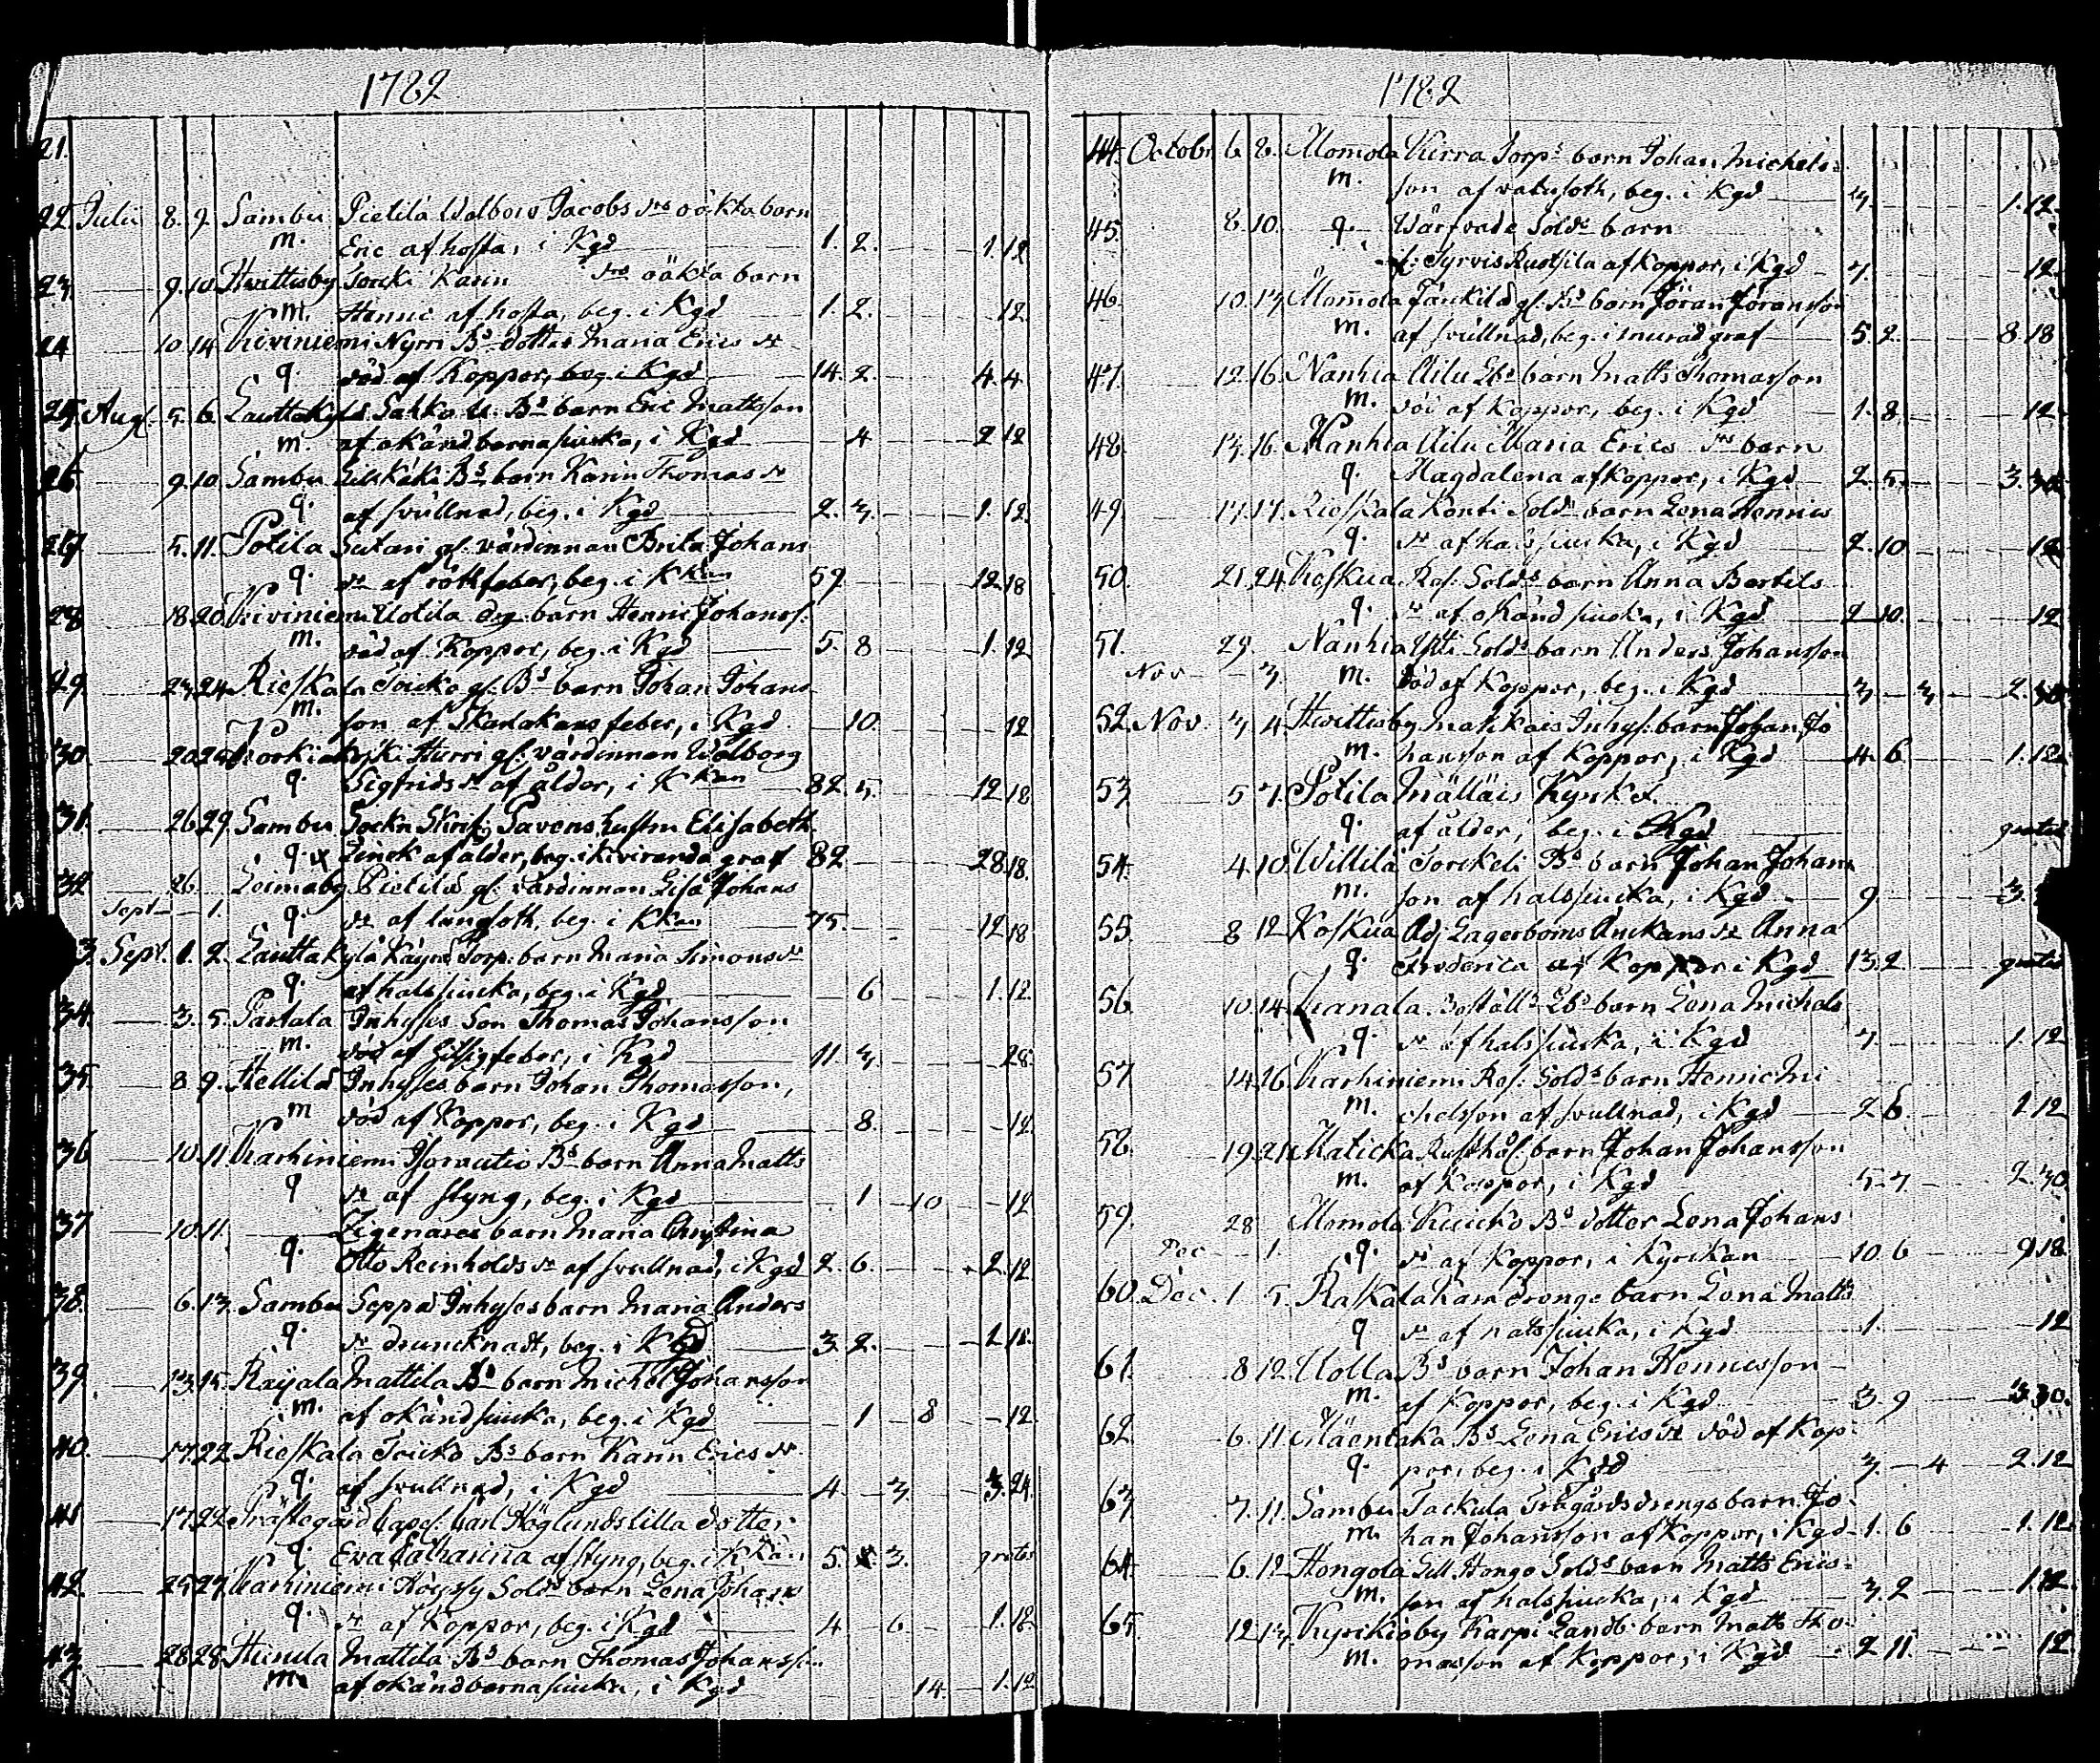 1782
21.
22. Julii 8. 9. Sambu Pietilä Walborg Jacobs drs oäkta barn
m. Eric af hosta, i Kgd 1. 2. 1. 12
23. 9. 10 Hvittisby Sorcki Karin drs oäkta barn
m. Henric af hosta, beg. i Kgd 1. 2. 12.
24 10 14 Kiviniemi Nyrri Bs dotter Maria Erics dr
q. död af Koppor, beg. i Kgd 14. 2. 4. 4
25. Aug. 5. 6. Lauttakylä Sakko Bs barn Eric Mattsson
m. af okänd barnasjuka, i Kgd 4 2 12
26. 9. 10 Sambu Bs barn Karin Thomas dr
q. af svullnad, beg. i Kgd 2. 3. 1. 12.
27. 5. 11. Potila Sutari gl. värdinnan Brita Johans
q. dr af rötfeber, beg. i Kkan 59. 12. 18
28 18. 20 Kiviniemi Uotila drg. barn Henric Johanss.
m. död af Koppor, beg. i Kgd 5. 8 1. 12
29. 23. 24. Rieskala Toicko gl. Bs barn Johan Johans
m. son af Skarlakans feber, i Kgd 10. 12
30. 20 24 Korkiakoski Hurri gl. värdinnan Walborg
q. Sigfrids dr af ålder, i Kkan 82. 5. 12 18
31. 26 29. Sambu Sockn Skrif. Pavens hustru Elisabeth
q. Linck af ålder, beg. i graf 82 28. 18.
32 26 Loimaby Pietilä gl. värdinnan Lisa Johans
Sept. 1. q. dr af lungsoth, beg. i Kkan 75. 12 18
3. Sept. 1. 2. Lauttakylä Käyrä Torp. barn Maria Simons dr
q. af halssjucka, beg. i Kgd 6 1. 12.
34. 3. 5. Pärtala Inhyses Son Thomas Johansson
m. död af hitsigfeber, i Kgd 11. 3. 28.
35. 8 9. Hellilä Inhyses barn Johan Thomasson,
m död af Koppor, beg. i Kgd 8. 12.
36 10. 11. Karhiniemi Bs barn Anna Matts
q dr af styng, beg. i Kgd 1 10 12
37 10. 11. Zigenares barn Maria Christina
q. Otto Reinholds dr af svullnad, i Kgd 2. 6. 2. 12
38. 6. 13. Sambu Seppä Inhyses barn Maria Anders
q. dr druncknadt, beg. i Kgd 3. 2. 1 18.
39. 13. 15. Räijala Mattila Bs barn Michel Johansson
m. af okänd sjucka, beg. i Kgd 1 8 12.
40. 17. 22 Rieskala Toicko Bs barn Karin Erics dr
q. af svullnad, i Kgd 4. 3. 3. 24.
41 17. 22 Prästegård Capel. Carl Höglunds lilla dotter
q. Eva Catharina af styng, beg. i Kkan 5. 3. gratis
42. 25 27. Karhiniemi Höyssy Solds barn Lena Johans
q. dr af Koppor, beg. i Kgd 4 6 1. 12.
43. 28 28. Huida Mattila Bs barn Thomas Johansson
m. af okänd barnasjucka, i Kgd 14. 1. 12
1782
44. Octobr 6. 8. Momola Kirra Torps barn Johan Michels-
m. son af vatusoth, beg. i Kgd 3. 1. 12.
45. 8. 10. q. Wärfvade Solds barn
af Koppor, i Kgd 7. 12.
46. 10. 13. Mommola Täukilä gl. Bs barn Jöran Jöransson
m. af svullnad, beg. i murad graf 5. 2. 8. 18
47. 12. 16. Nanhia Äilu Lbs barn Matts Thomasson
m. död af Koppor, beg. i Kgd 1. 8. 12.
48. 13. 16. Nanhia Äilu Maria Erics drs barn
q. Magdalena af Koppor, i Kgd 2. 5. 3. 30
49. 17. 17. Rieskala Konti Solds barn Lena Henrics
q. dr af halssjucka, i Kgd 2. 10 12
50. 21. 24. Koskua Ros. Solds barn Anna Bertils
q. dr af okänd sjucka, i Kgd 2. 10. 12
51. 29. Nanhia Solds barn Anders Johansson
Nov 3. m. död af Koppor, beg. i Kgd 3 3. 2. 30
52. Nov. 3. 4. Hvittisby Mahkais Inhys. barn Johan Jo
m. hansson af Koppor, i Kgd 4. 6 1. 12
53 5 7. Potila Mälläis
q. af ålder, beg. i Kgd gratis
54. 4. 10. Willilä Torckeli Bs barn Johan Johans
m. son af halssjucka, i Kgd 9. 3.
55. 8 12 Koskua Adj. Lagerboms Änckans dr Anna
q. Frederica af Koppor i Kgd 13. 2 gratis
56. 10. 14. Kanala Boställs Lbs barn Lena Michels
q. dr af halssjucka, i Kgd 7. 1. 12
57 14. 16. Karhiniemi Ros. Solds barn Henric Mi
m. chelsson af svullnad, i Kgd 2 6. 1 12
58. 19. 21. Maticka Rusthål. barn Johan Johansson
m. af Koppor, i Kgd 5. 7. 2. 30.
59. 28 Momola Kuicko Bs dotter Lena Johans
Dec 1. q. dr af Koppor, i Kyrckan 10. 6 9 18.
60. Dec. 1 5. Raskala drengs barn Lena Matts
q dr af halssjucka, i Kgd 1. 12
61. 8. 12. Uolla Bs barn Johan Henricsson
m. af Koppor, beg. i Kgd 3. 9 3. 30.
62. 6. 11. Mäentaka Bs Lena Erics dr död af Kop-
q. por, beg. i Kgd 3. 4 2. 12
63. 7. 11. Sambu Tackula Trägårdsdrengs barn Jo-
m. han Johansson af Koppor, i Kgd 1. 6 1. 12
64. 6. 12 Hongola Hongo Solds barn Matts Erics-
m. son af halssjucka, i Kgd 3. 2 1. 12.
65. 12. 13. Kyrckioby Karpi Landb. barn Matts Tho-
m. masson af Koppor, i Kgd 2 11. 12